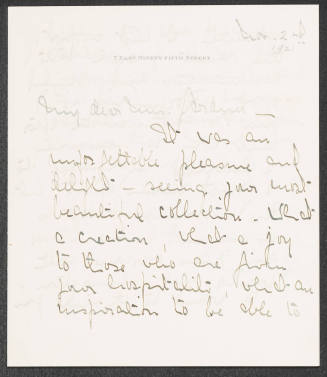 Nov. 2nd
1921
7 EAST NINETY FIFTH STREET
My dear Mrs.
It was an
unforgettable pleasure and
delight – seeing your most
beautiful collection – What
a creation, what a joy
to those who are given
your hospitality, what an
inspiration to be able to